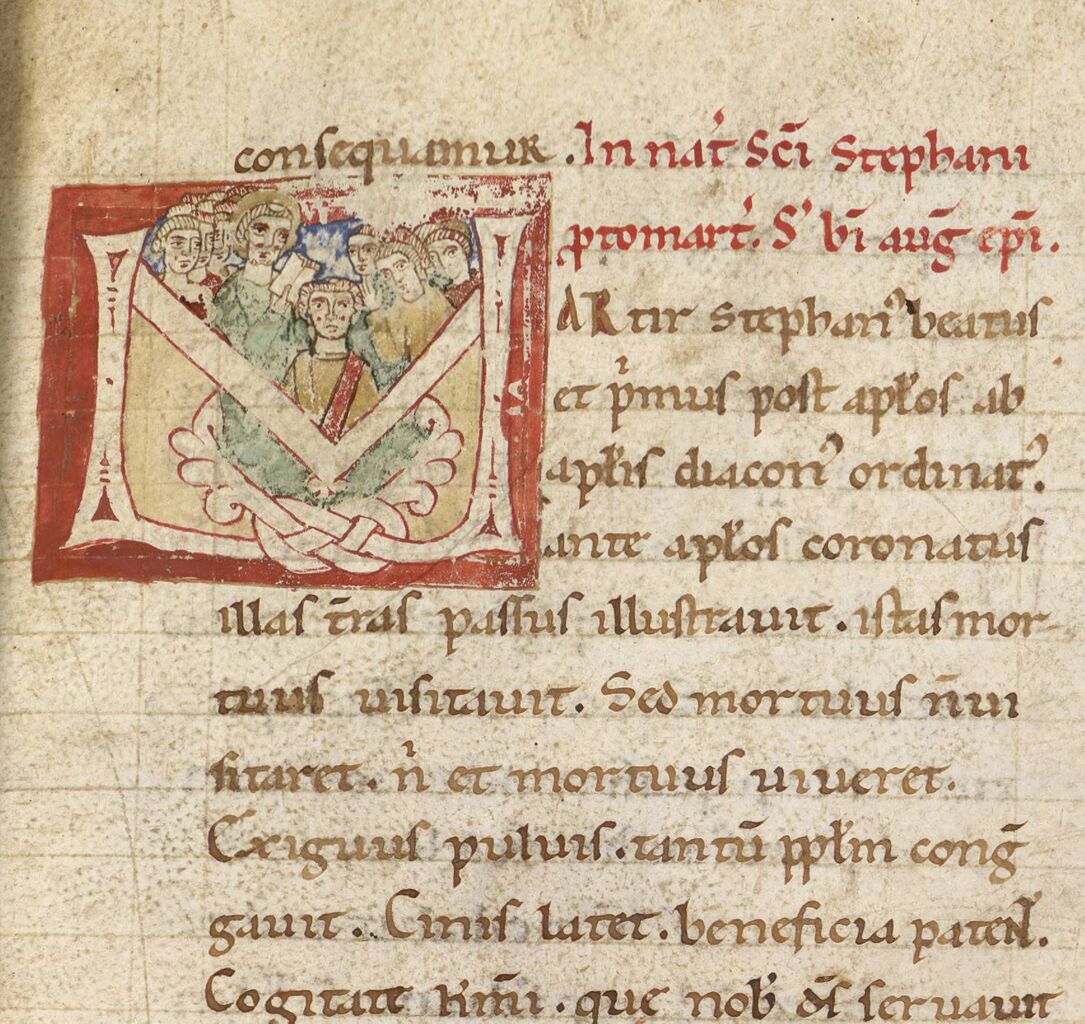 consequamur. In nať sc̄i stephani
ꝓtomarť. S' bī aug̅ ep̄i.
MARtir stephanꝰ beatus
et p'mus post apłos ab
apłis diaconꝰ ordinat'.
ante apłos coronatus
illas t̄ras passus illustrauit. istas mor-
tuus uisitauit. Sed mortuus n̄ ui
sitaret. n' et mortuus uiueret.
Exiguus puluis. tantū ppłm cong̅
gauit. Cinis latet. beneficia patent.
Cogitate kr̄mi. que nob' ds̄ seruauit